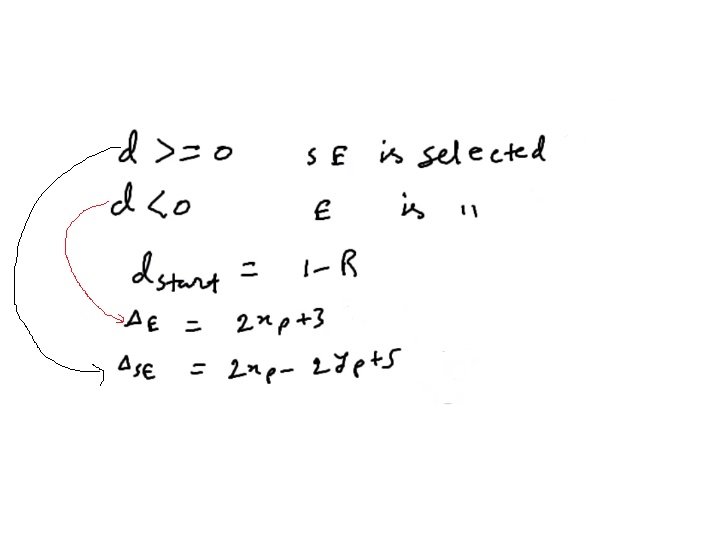 d >= 0 SE is selected
d < 0 E is "
d_start = 1 - R
Δ_E = 2x_p + 3
Δ_SE = 2x_p - 2y_p + 5